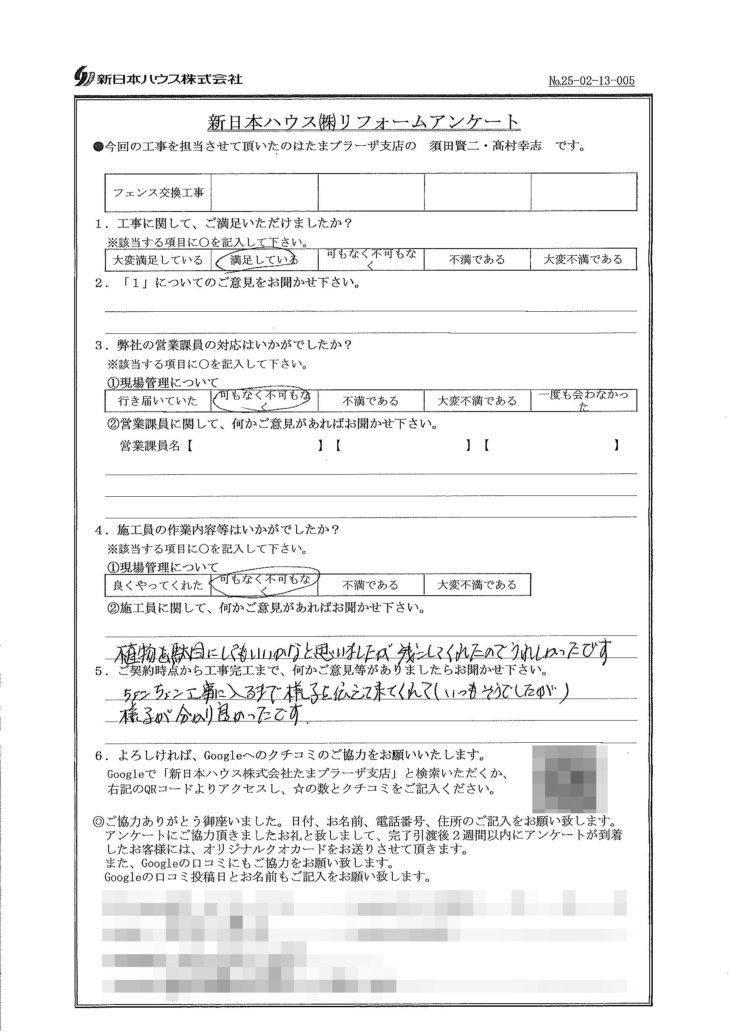 新日本ハウス株式会社
№25-02-13-005
新日本ハウス㈱リフォームアンケート
●今回の工事を担当させて頂いたのはたまプラーザ支店の 須田賢二・髙村幸志 です。
フェンス交換工事
１．工事に関して、ご満足いただけましたか？
※該当する項目に○を記入して下さい。
大変満足している 満足している 可もなく不可もなく 不満である 大変不満である
２．「１」についてのご意見をお聞かせ下さい。
３．弊社の営業課員の対応はいかがでしたか？
※該当する項目に○を記入して下さい。
①現場管理について
行き届いていた 可もなく不可もなく 不満である 大変不満である 一度も会わなかった
②営業課員に関して、何かご意見があればお聞かせ下さい。
営業課員名【 】【 】【 】
４．施工員の作業内容等はいかがでしたか？
※該当する項目に○を記入して下さい。
①現場管理について
良くやってくれた 可もなく不可もなく 不満である 大変不満である
②施工員に関して、何かご意見があればお聞かせ下さい。
植物を駄目にしてもいいのかなと思いましたが残してくれたのでうれしかったです
５．ご契約時点から工事完工まで、何かご意見等がありましたらお聞かせ下さい。
ちょこちょこ工事に入るまで様子を伝えて来てくれて(いつもそうでしたが)
様子が分かり良かったです.
６．よろしければ、Googleへのクチコミのご協力をお願いいたします。
Googleで「新日本ハウス株式会社たまプラーザ支店」と検索いただくか、
右記のQRコードよりアクセスし、☆の数とクチコミをご記入ください。
◎ご協力ありがとう御座いました。日付、お名前、電話番号、住所のご記入をお願い致します。
アンケートにご協力頂きましたお礼と致しまして、完了引渡後２週間以内にアンケートが到着
したお客様には、オリジナルクオカードをお送りさせて頂きます。
また、Googleの口コミにもご協力をお願い致します。
Googleの口コミ投稿日とお名前もご記入をお願い致します。